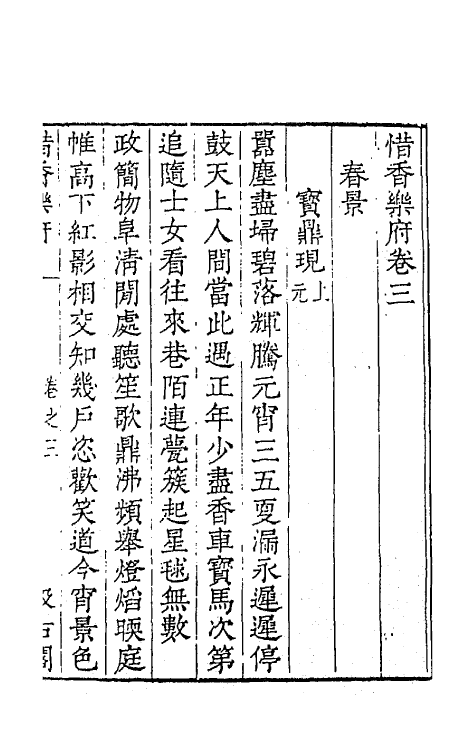 惜香樂府卷三
春景
寶鼎現上元
囂塵盡埽碧落輝騰元宵三五更漏永遲遲停
鼓天上人間當此遇正年少盡香車寶馬次第
追隨士女看往來巷陌連甍簇起星毬無數
政簡物阜清閒處聽笙歌鼎沸頻舉燈熖暖庭
帷高下紅影相交知幾戶恣歡笑道今宵景色
惜香樂府 卷之三 汲古閣